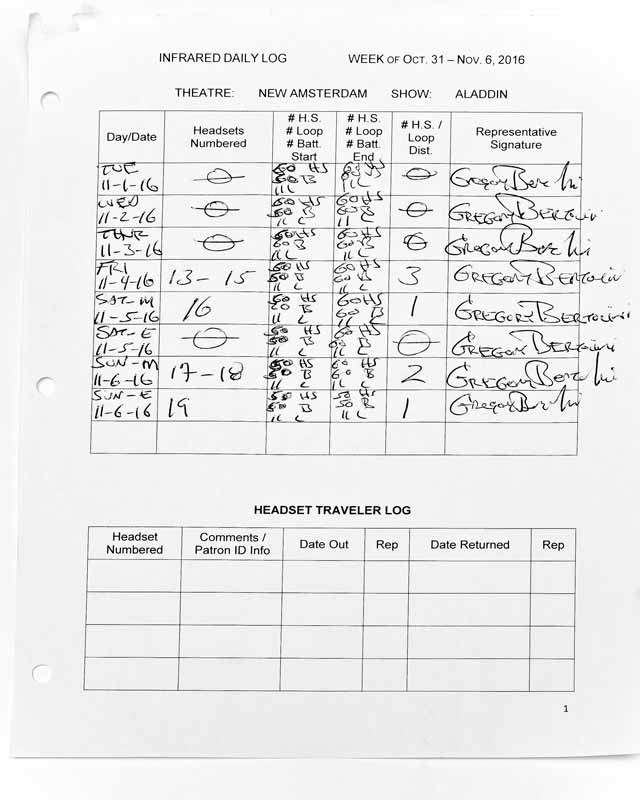 INFRARED DAILY LOG WEEK OF OCT. 31 – NOV. 6, 2016
THEATRE: NEW AMSTERDAM SHOW: ALADDIN
Day/Date Headsets Numbered # H.S. # Loop # Batt. Start # H.S. # Loop # Batt. End # H.S. / Loop Dist. Representative Signature
TUE
11-1-16 HS B 11 L GREGORY
WED
11-2-16 HS B 11 L 60 HS 60 B 11 L GREGORY BERTOLINI
THUR
11-3-16 HS 60 B 11 L 60 HS B 11 L GREGORY
FRI
11-4-16 13-15 HS B 11 L 60 HS B 11 L 3 GREGORY BERTOLINI
SAT-M
11-5-16 16 HS B 11 L 60 HS 60 B 11 L 1 GREGORY BERTOLINI
SAT-E
11-5-16 HS B 11 L HS B 11 L GREGORY BERTOLINI
SUN-M
11-6-16 17-18 HS B 11 L HS 60 B 11 L 2 GREGORY
SUN-E
11-6-16 19 HS B 11 L 50 HS 50 B 11 L 1 GREGORY
HEADSET TRAVELER LOG
Headset Numbered Comments / Patron ID Info Date Out Rep Date Returned Rep
1